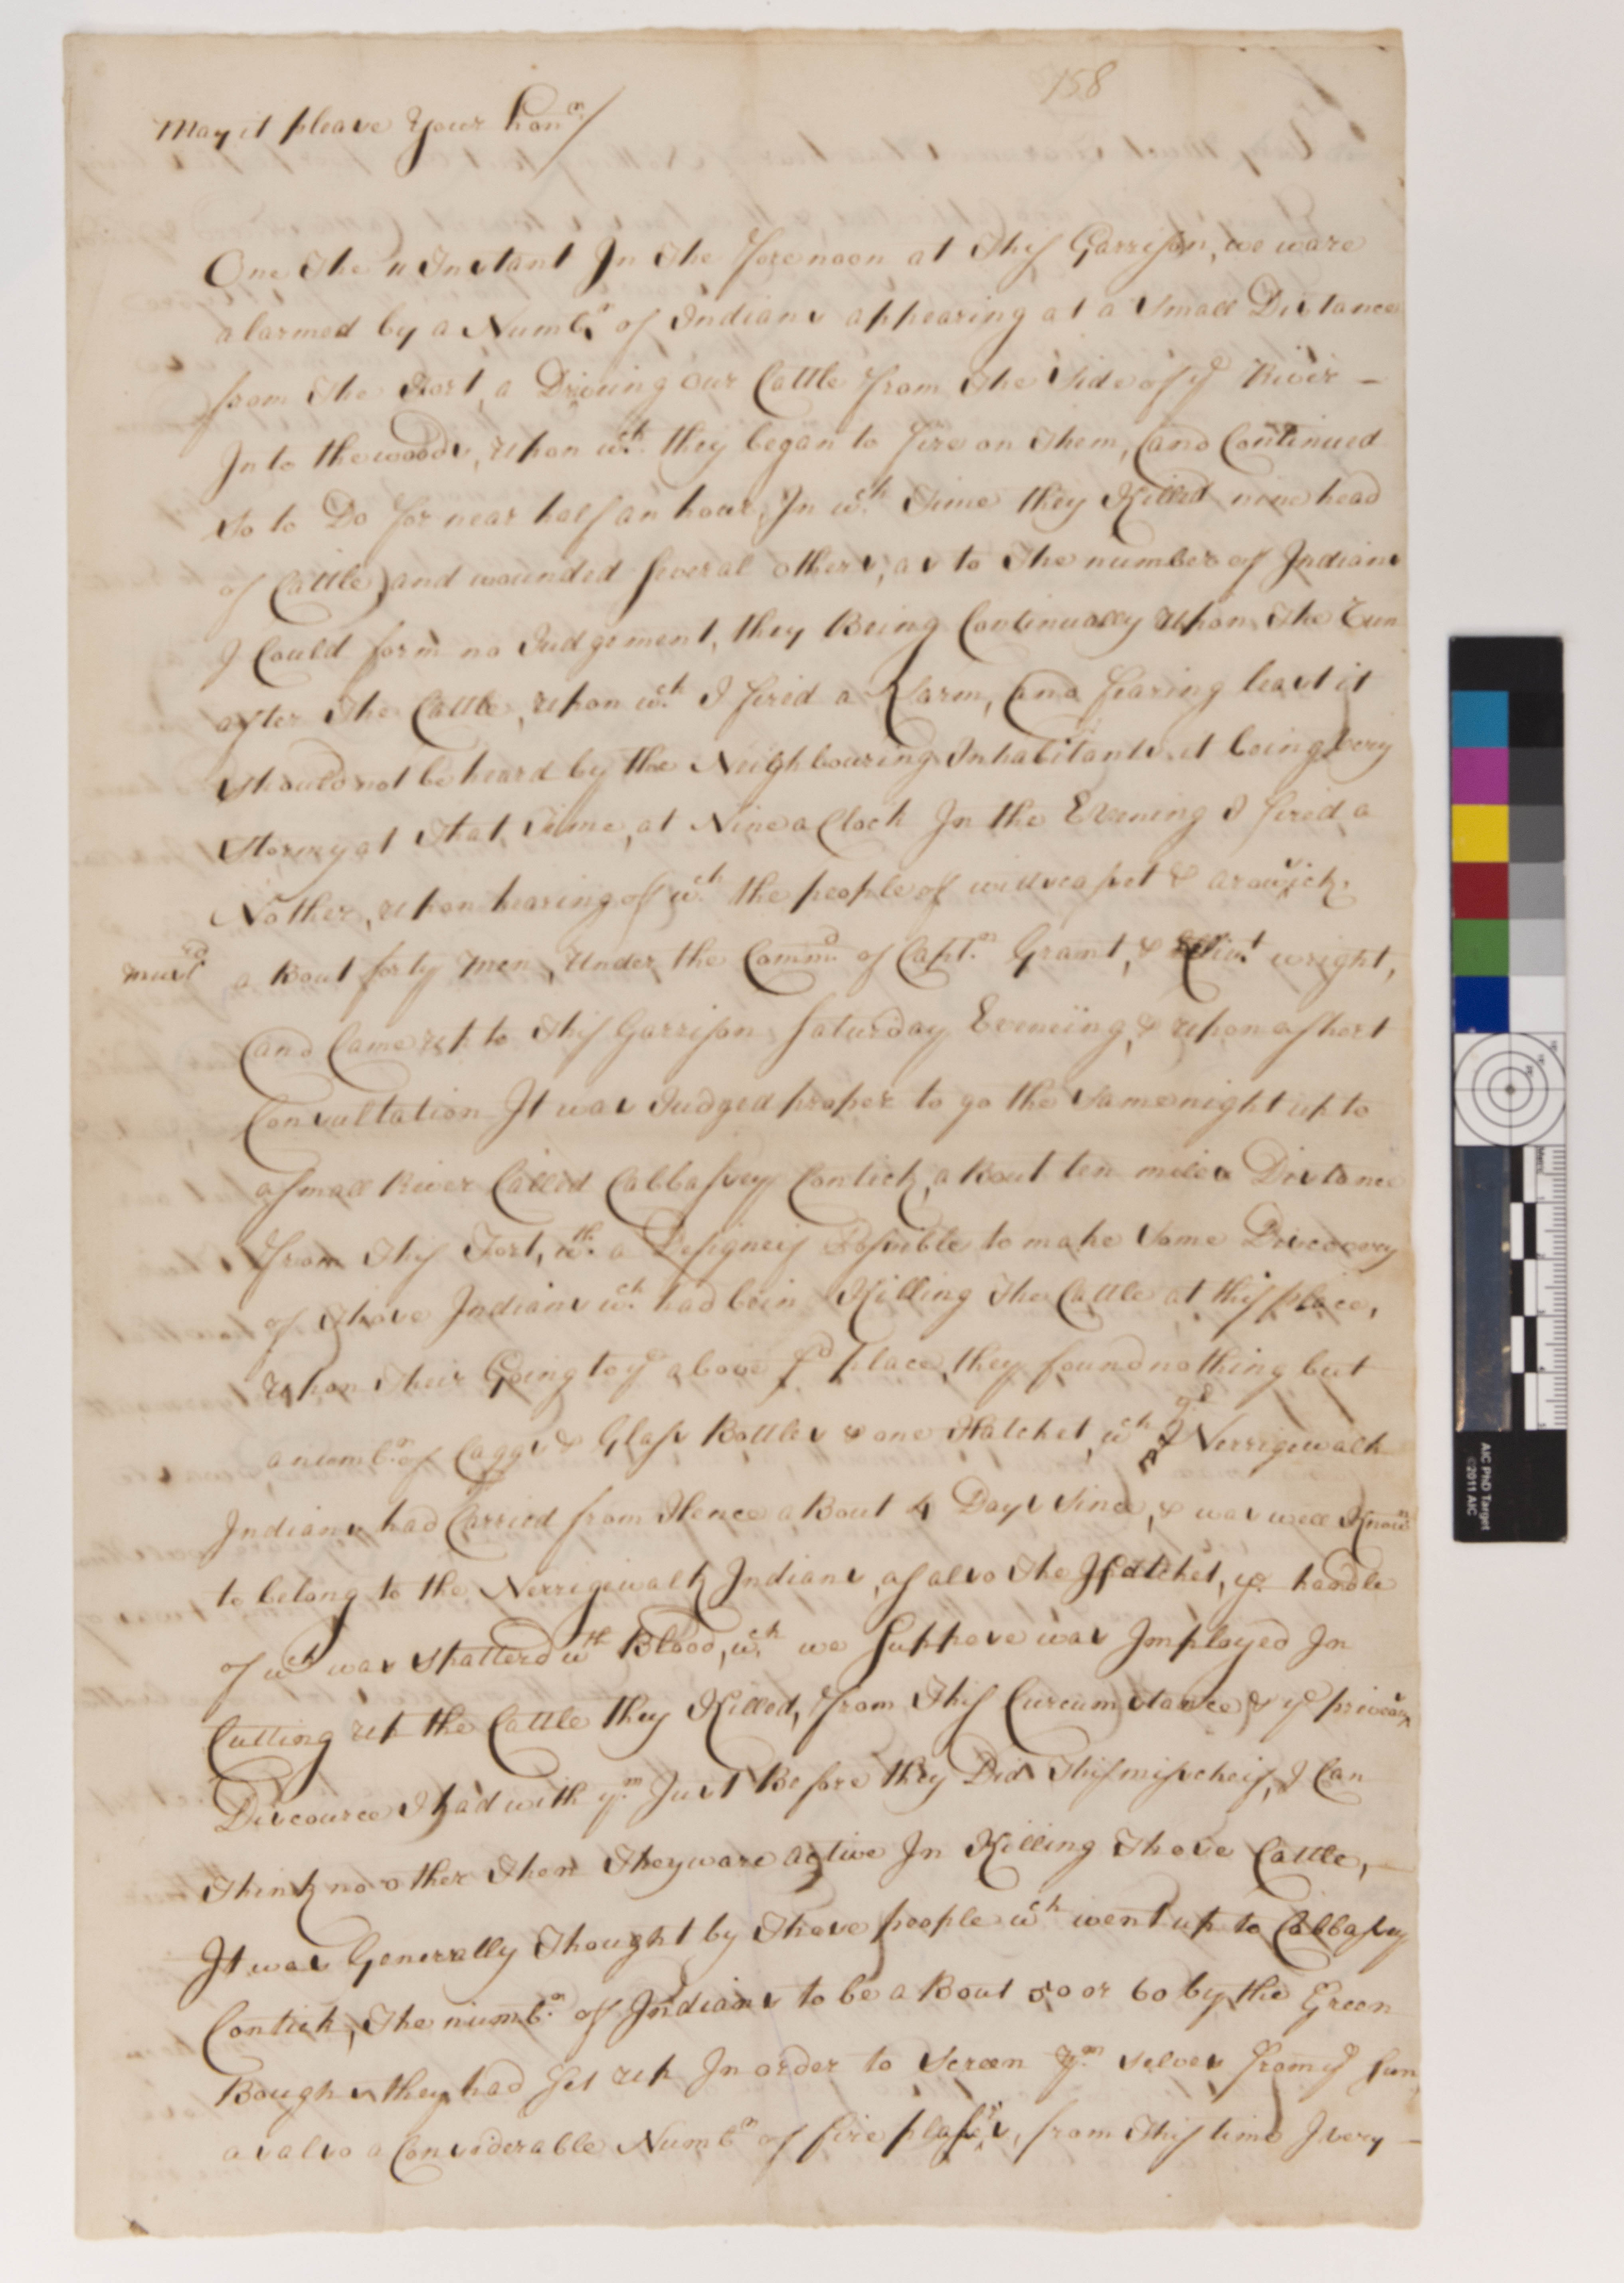 158
May it please Your Honr/
One The 11 Instant In The forenoon at This Garrison, we ware
alarmed by a Numbr of Indians appearing at a Small Distance
from The Fort, a Driveing our Cattle from The Side of ye River -
In to the woods, upon wch they began to fire on Them, and Continued
So to Do for near half an hour, In wch Time they Killed nine head
of Cattle, and wounded several others, as to The number of Indians
I Could form no Judgement, they Being Continually upon The Run
after The Cattle, upon wch I fired a Larm, and fearing least it
should not be heard by the Neighbouring Inhabitants it being very
Stormy at That Time, at Nine a Clock In the Evening I fired a
Nother, upon hearing of wch the people of wisscasset & arowsick
musd a Bout forty men, Under the Commd of Captn Grant, & Livt wright,
and Came up to This Garrison Saturday Eveneing, & upon a short
Consultation It was Judged proper to go the Same night up to
a small River Called Cabbassey Contick, a Bout ten miles Distance
from This Fort, wth a Designe if Possible to make Some Discovery
of Those Indians wch had bein Killing The Cattle at this place,
upon Their Going to ye above sd place, they found nothing but
a numbr of Caggs & Glass Bottles & one Hatchet, wch ye Nerrigewalk
Indians had Carried from Hence a Bout 4 Days Since, & was well Known
to belong to the Nerrigewalk Indians, as also The Hatchet, ye handle
of wch was spatterd wth Blood, wch we Suppose was Imployed In
Cutting up the Cattle they Killed, from This Curcumstance, & ye previous
Discource I had with ym Just Before they Did This mischeif, I Can
Think no other Then They ware active In Killing Those Cattle, -
It was Generally Thought by Those people wch went up to Cabbassey
Contick, The numbr of Indians to be a Bout 50 or 60 by the Green
Boughs they had set up In order to Screen ym selves from ye Sun
as also a Considerable Numbr of fire places, from This time I very -
AIC PhD Target
©2011 AIC